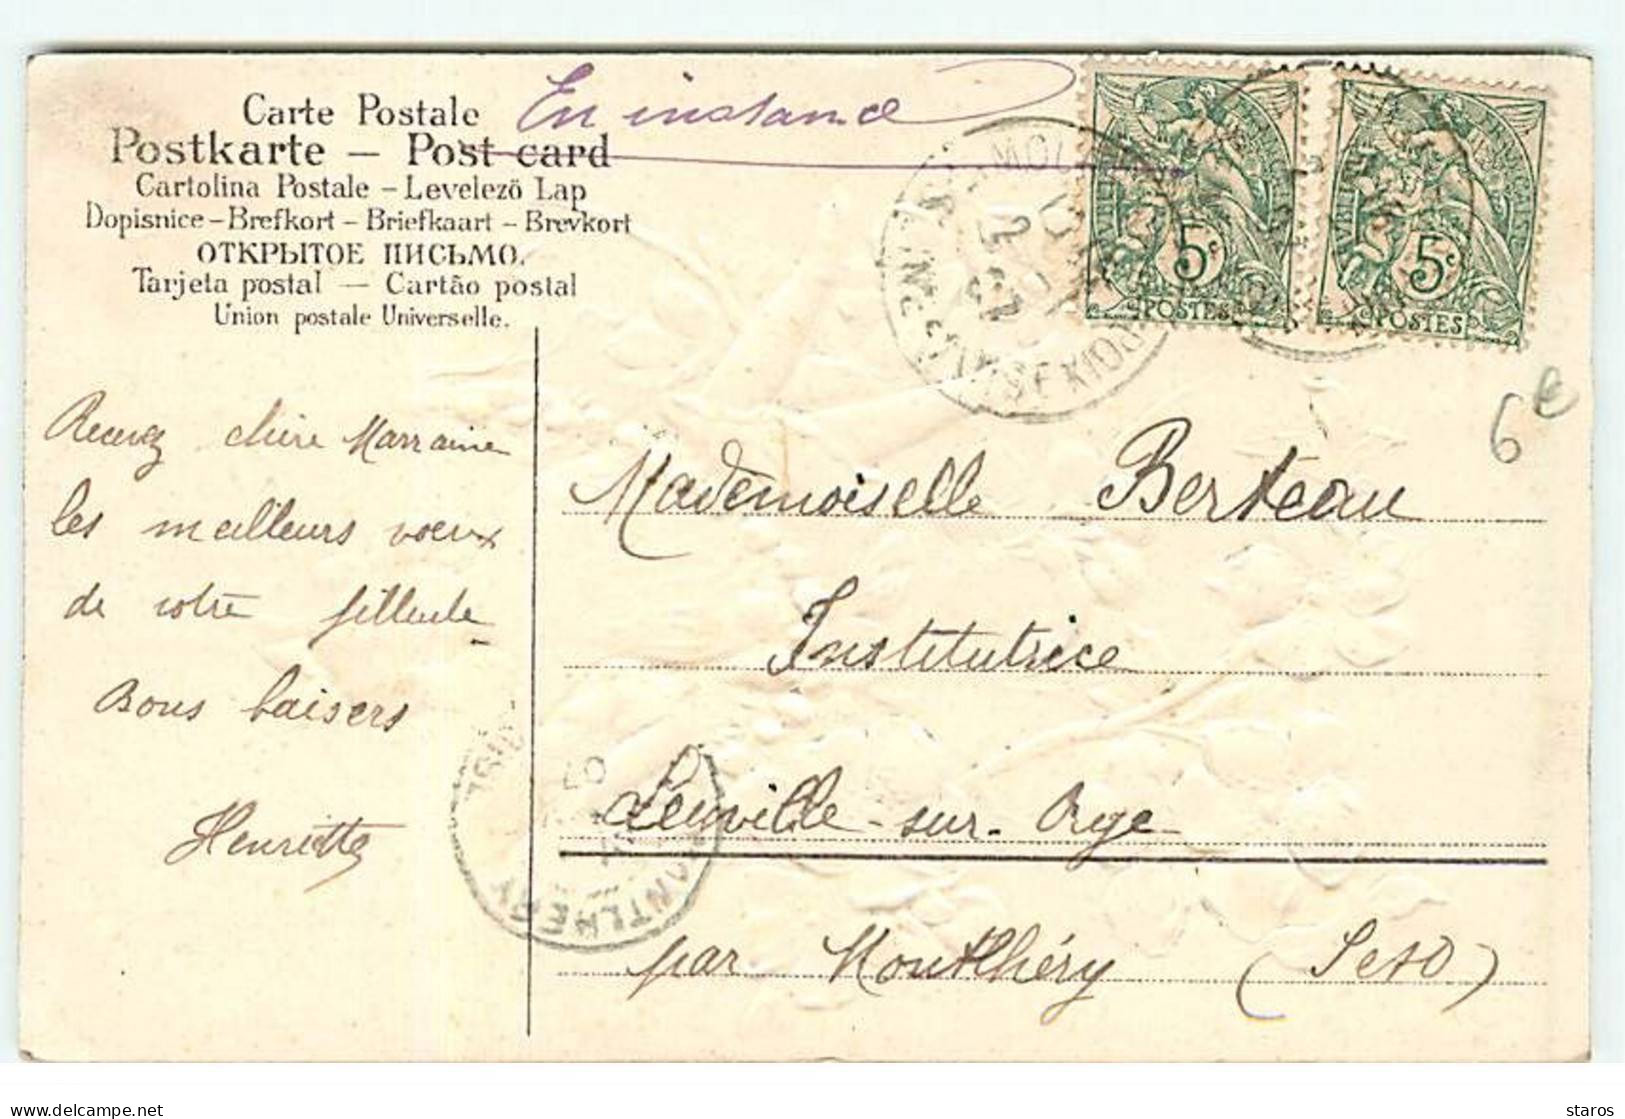 Carte Postale
En instance
Postkarte - Post card
Cartolina Postale - Levelező Lap
Dopisnice - Brefkort - Briefkaart - Brevkort
ОТКРЫТОЕ ПИСЬМО.
Tarjeta postal - Cartão postal
Union postale Universelle.
5c
POSTES
5c
POSTES
6€
Recevez chère Marraine
les meilleurs voeux
de votre filleule
Bons baisers
Henriette
Mademoiselle Berteau
Institutrice
Leuville-sur-Orge
par Montlhéry (SetO)
07
delcampe.net
staros